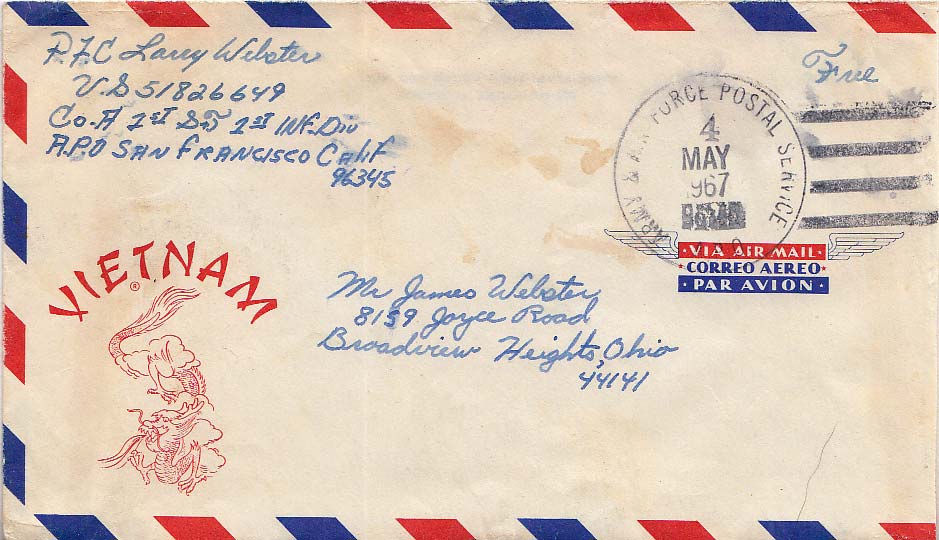 P.F.C Larry Webster
U.S 51826649
Co. A 1st S&T 1st INF. Div
A.P.O SAN FRANCISCO Calif
96345
Free
ARMY & AIR FORCE POSTAL SERVICE
4
MAY
1967
VIETNAM
®
VIA AIR MAIL
CORREO AEREO
PAR AVION
Mr James Webster
8159 Joyce Road
Broadview Heights, Ohio
44141